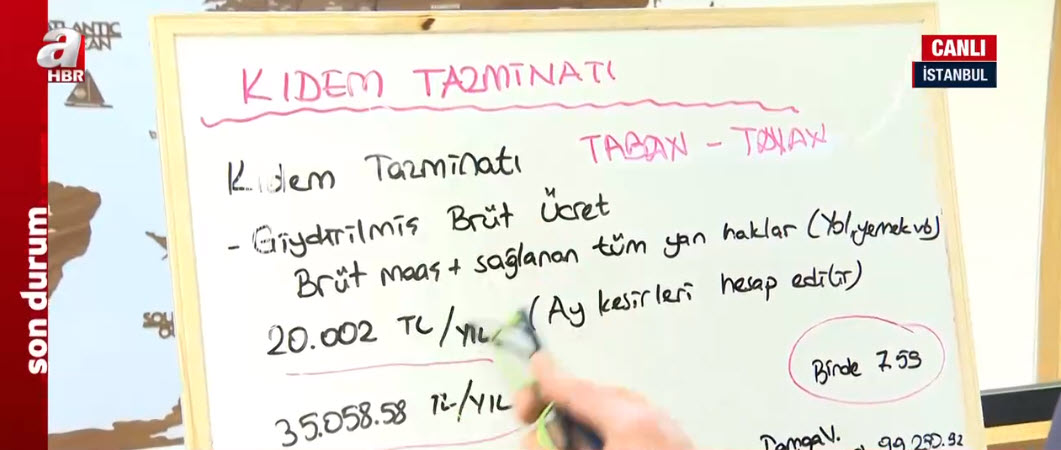 ATLANTIC
a
HBR
CANLI
İSTANBUL
son durum
KIDEM TAZMİNATI
TABAN - TAVAN
Kıdem Tazminatı
- Giydirilmiş Brüt Ücret
Brüt maaş + sağlanan tüm yan haklar (Yol, yemek vb)
20.002 TL/YIL (Ay kesirleri hesap edilir)
Binde 7.59
35.058.58 TL/YIL
Damga V.
99 250.92